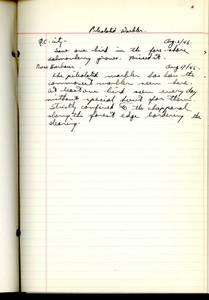 Pileolated Warbler.
Q.C. City. Aug 2/46
Saw one bird in the fore-shore
salmonberry growth. Missed it.
Aug 17/46.
The pileolated warbler has been the
commonest warbler seen here.
At least one bird seen every day
without special hunt for them.
Strictly confined to the chapparal
along the forest edge bordering the
clearing.